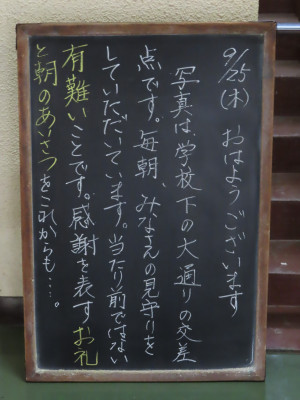 9/25(木) おはようございます
写真は学校下の大通りの交差
点です。毎朝、みなさんの見守りを
していただいています。当たり前ではない
有難いことです。感謝を表すお礼
と朝のあいさつをこれからも…。